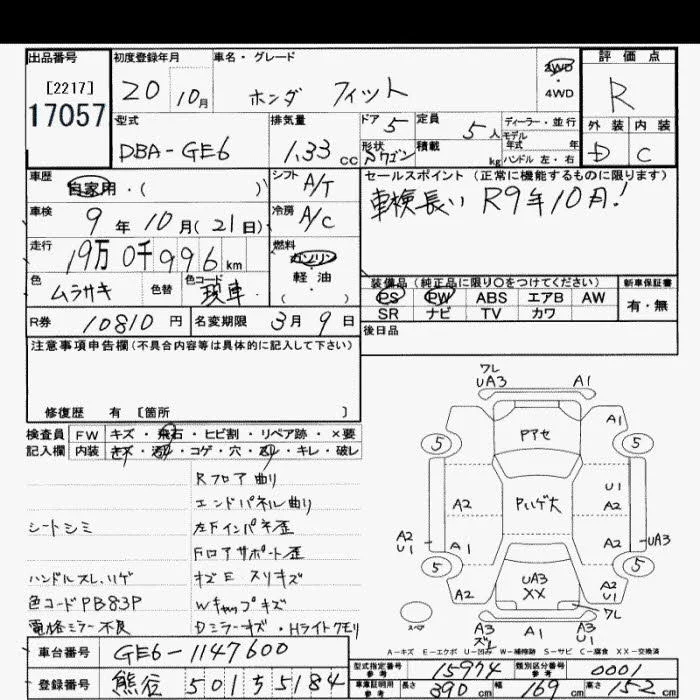 出品番号
[2217]
17057
初度登録年月
20 10月
車名・グレード
ホンダ フィット
2WD
・
4WD
評価点
R
外装 内装
D C
型式
DBA-GE6
排気量
1.33 cc
ドア 5
定員 5人
形状 5ワゴン
積載 kg
ディーラー・並行
モデル年式 年
ハンドル 左・右
車歴
自家用・( )
シフト A/T
セールスポイント(正常に機能するものに限ります)
車検長い R9年10月!
車検
9年10月(21日)
冷房 A/C
走行
19万0千996km
燃料
ガソリン
軽・油
・
( )
色
ムラサキ
色替
色コード
現車
装備品(純正品に限り○をつけてください)
PS PW ABS エアB AW
SR ナビ TV カワ
新車保証書
有・無
R券 10810円
名変期限 3月9日
後日品
注意事項申告欄(不具合内容等は具体的に記入して下さい)
修復歴 有 [箇所 ]
検査員
記入欄
FW キズ・飛石・ヒビ割・リペア跡・×要
内装 キズ・汚・コゲ・穴・ヌレ・キレ・破レ
Rフロア曲り
エンドパネル曲り
シートシミ
左Fインパネ歪
Fロアサポート歪
ハンドルスレ、ハゲ
キズE スリキズ
色コードPB83P
Wキャップキズ
電格ミラー不良
Dミラーキズ・Hライトクモリ
ワレ
UA3 A1
Pアセ
A1
5 5
U1
A2 Pハゲ大 A2
A2
U1
A1
UA3
5 5
A2
UA3
XX
A2
U1
ワレ
スペア
A3
ズレ
A1
A3
U1
A-キズ E-エクボ U-凹み W-補修跡 S-サビ C-腐食 XX-交換済
車台番号 GE6-1147600
登録番号 熊谷 501 ち 5184
型式指定番号
参考
15974
類別区分番号
参考
0001
車庫証明用
参考
長さ 390cm 幅 169cm 高さ 152cm